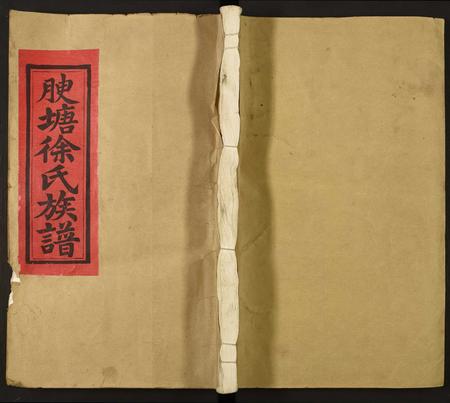 腴塘徐氏族譜